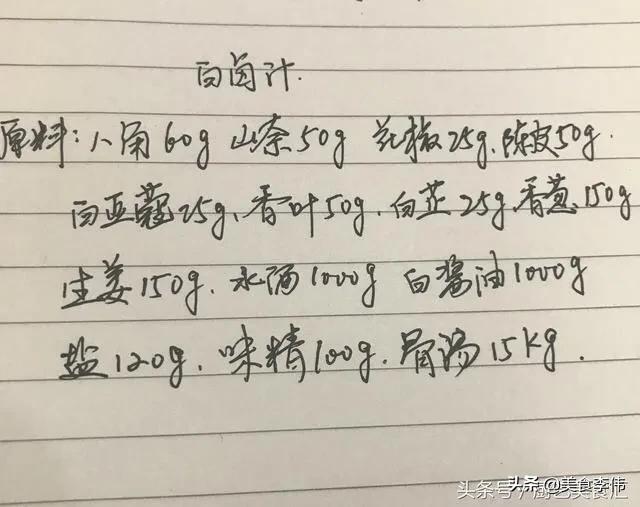 白卤汁.
原料:八角60g 山柰50g 花椒25g、陈皮50g.
白豆蔻25g、香叶50g.白芷25g.香葱150g
生姜150g.水酒1000g 白酱油1000g
盐120g.味精100g.骨汤15kg.
头条 @美食李伟
头条号/厨艺美食汇